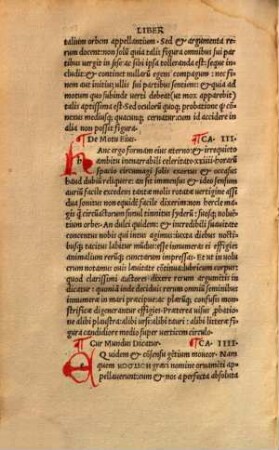 LIBER
talium orbem appellantium. Sed & argumenta re
rum docent: non solū quia talis figura omnibus sui par
tibus vergit in sese: ac sibi ipsa toleranda est: seque in
cludit: & continet nullarū egens compagum: nec fi
nem aut initium ullis sui partibus sentiens: & quia ad
motum quo subinde verti debeat (ut mox apparebit)
talis aptissima est: Sed oculorū quoq; probatione q̄ cō
nexus mediusq; quacunq; cernatur: cum id accidere in
alia non possit figura.
De Motu Eius. CA. III.
Anc ergo formam eius æterno & irrequieto
ambitu inenarrabili celeritate xxiiii. horarū
spatio circumagi solis exortus & occasus
haud dubiū reliquere. an sit immensus & ideo sensum
auriū facile excedens tantæ molis rotatæ vertigine assi
dua sonitus non equidē facile dixerim non hercle ma
gis q̄ circūactorum simul tinnitus syderū: suosq; vol
uentium orbes. An dulci quidem: & incredibili suauitate
concentus nobis qui intus agimus iuxta diebus nocti
busq; tacitus labitur mundus. esse innumeras ei effigies
animalium rerūq; cunctarum impressas. Et nō ut in vo
lucrum notamus ouis leuitate cōtinua lubricum corpus
quod clarissimi auctores dicere rerum argumentis in
dicatur: quoniā inde deciduis rerum omniū seminibus
innumeræ in mari præcipue: ac plerūq; confusis mon
strificæ dignerantur effigies. Præterea visus probati
one alibi plaustri: alibi ursi: alibi tauri: alibi litteræ figu
ra candidiore medio super verticem circulo.
Cur Mundus Dicatur. CA. IIII.
Quidem & cōsensu gētium moueor. Nam
quem κόσμον græci nomine ornamēti ap
pellauerunt: eum & nos a perfecta absoluta